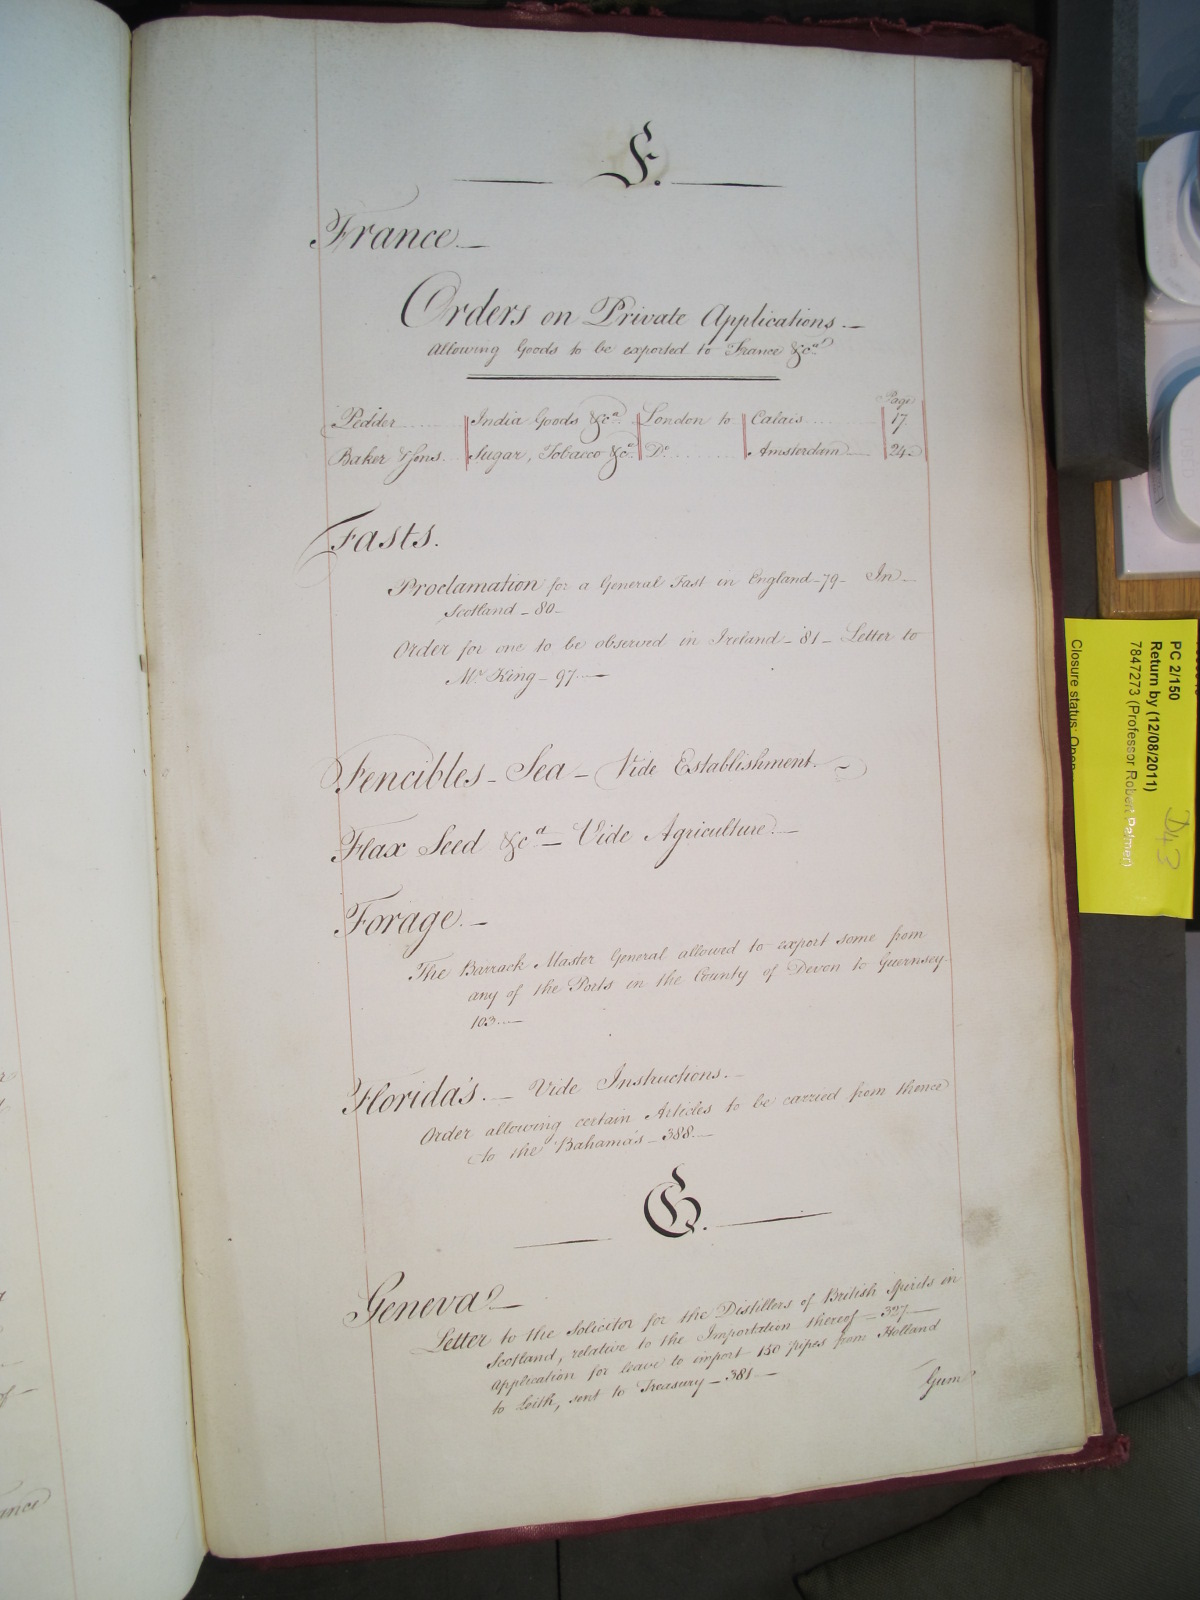 F.
France —
Orders on Private Applications. —
Allowing Goods to be exported to France &ca
Page
Pedder ...... India Goods &ca London to Calais ...... 17
Baker & Sons. Sugar, Tobacco &ca Do ...... Amsterdam 24
Fasts.
Proclamation for a General Fast in England — 79 — In
Scotland — 80 —
Order for one to be observed in Ireland — 81 — Letter to
Mr King — 97. —
Fencibles — Sea — Vide Establishment. —
Flax Seed &ca — Vide Agriculture. —
Forage. —
The Barrack Master General allowed to export some from
any of the Ports in the County of Devon to Guernsey
103. —
Florida's. — Vide Instructions. —
Order allowing certain Articles to be carried from thence
to the Bahama's — 388. —
G.
Geneva —
Letter to the Solicitor for the Distillers of British Spirits in
Scotland, relative to the Importation thereof — 327 —
Application for leave to import 150 pipes from Holland
to Leith, sent to Treasury — 381 —
Gum
PC 2/150
Return by (12/08/2011)
7847273 (Professor Robert Palmer)
Closure status: Open
D43